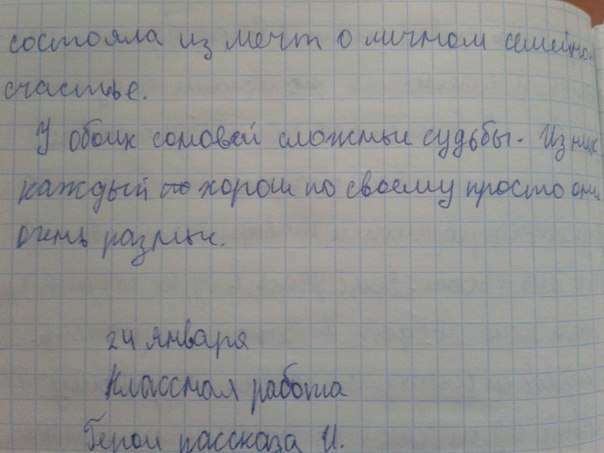 состояла из мечт о личном семейном
счастье.
У обоих соловей сложные судьбы. Из них
каждый по хорош по своему просто они
очень разные.
24 января
Классная работа
Герои рассказа И.